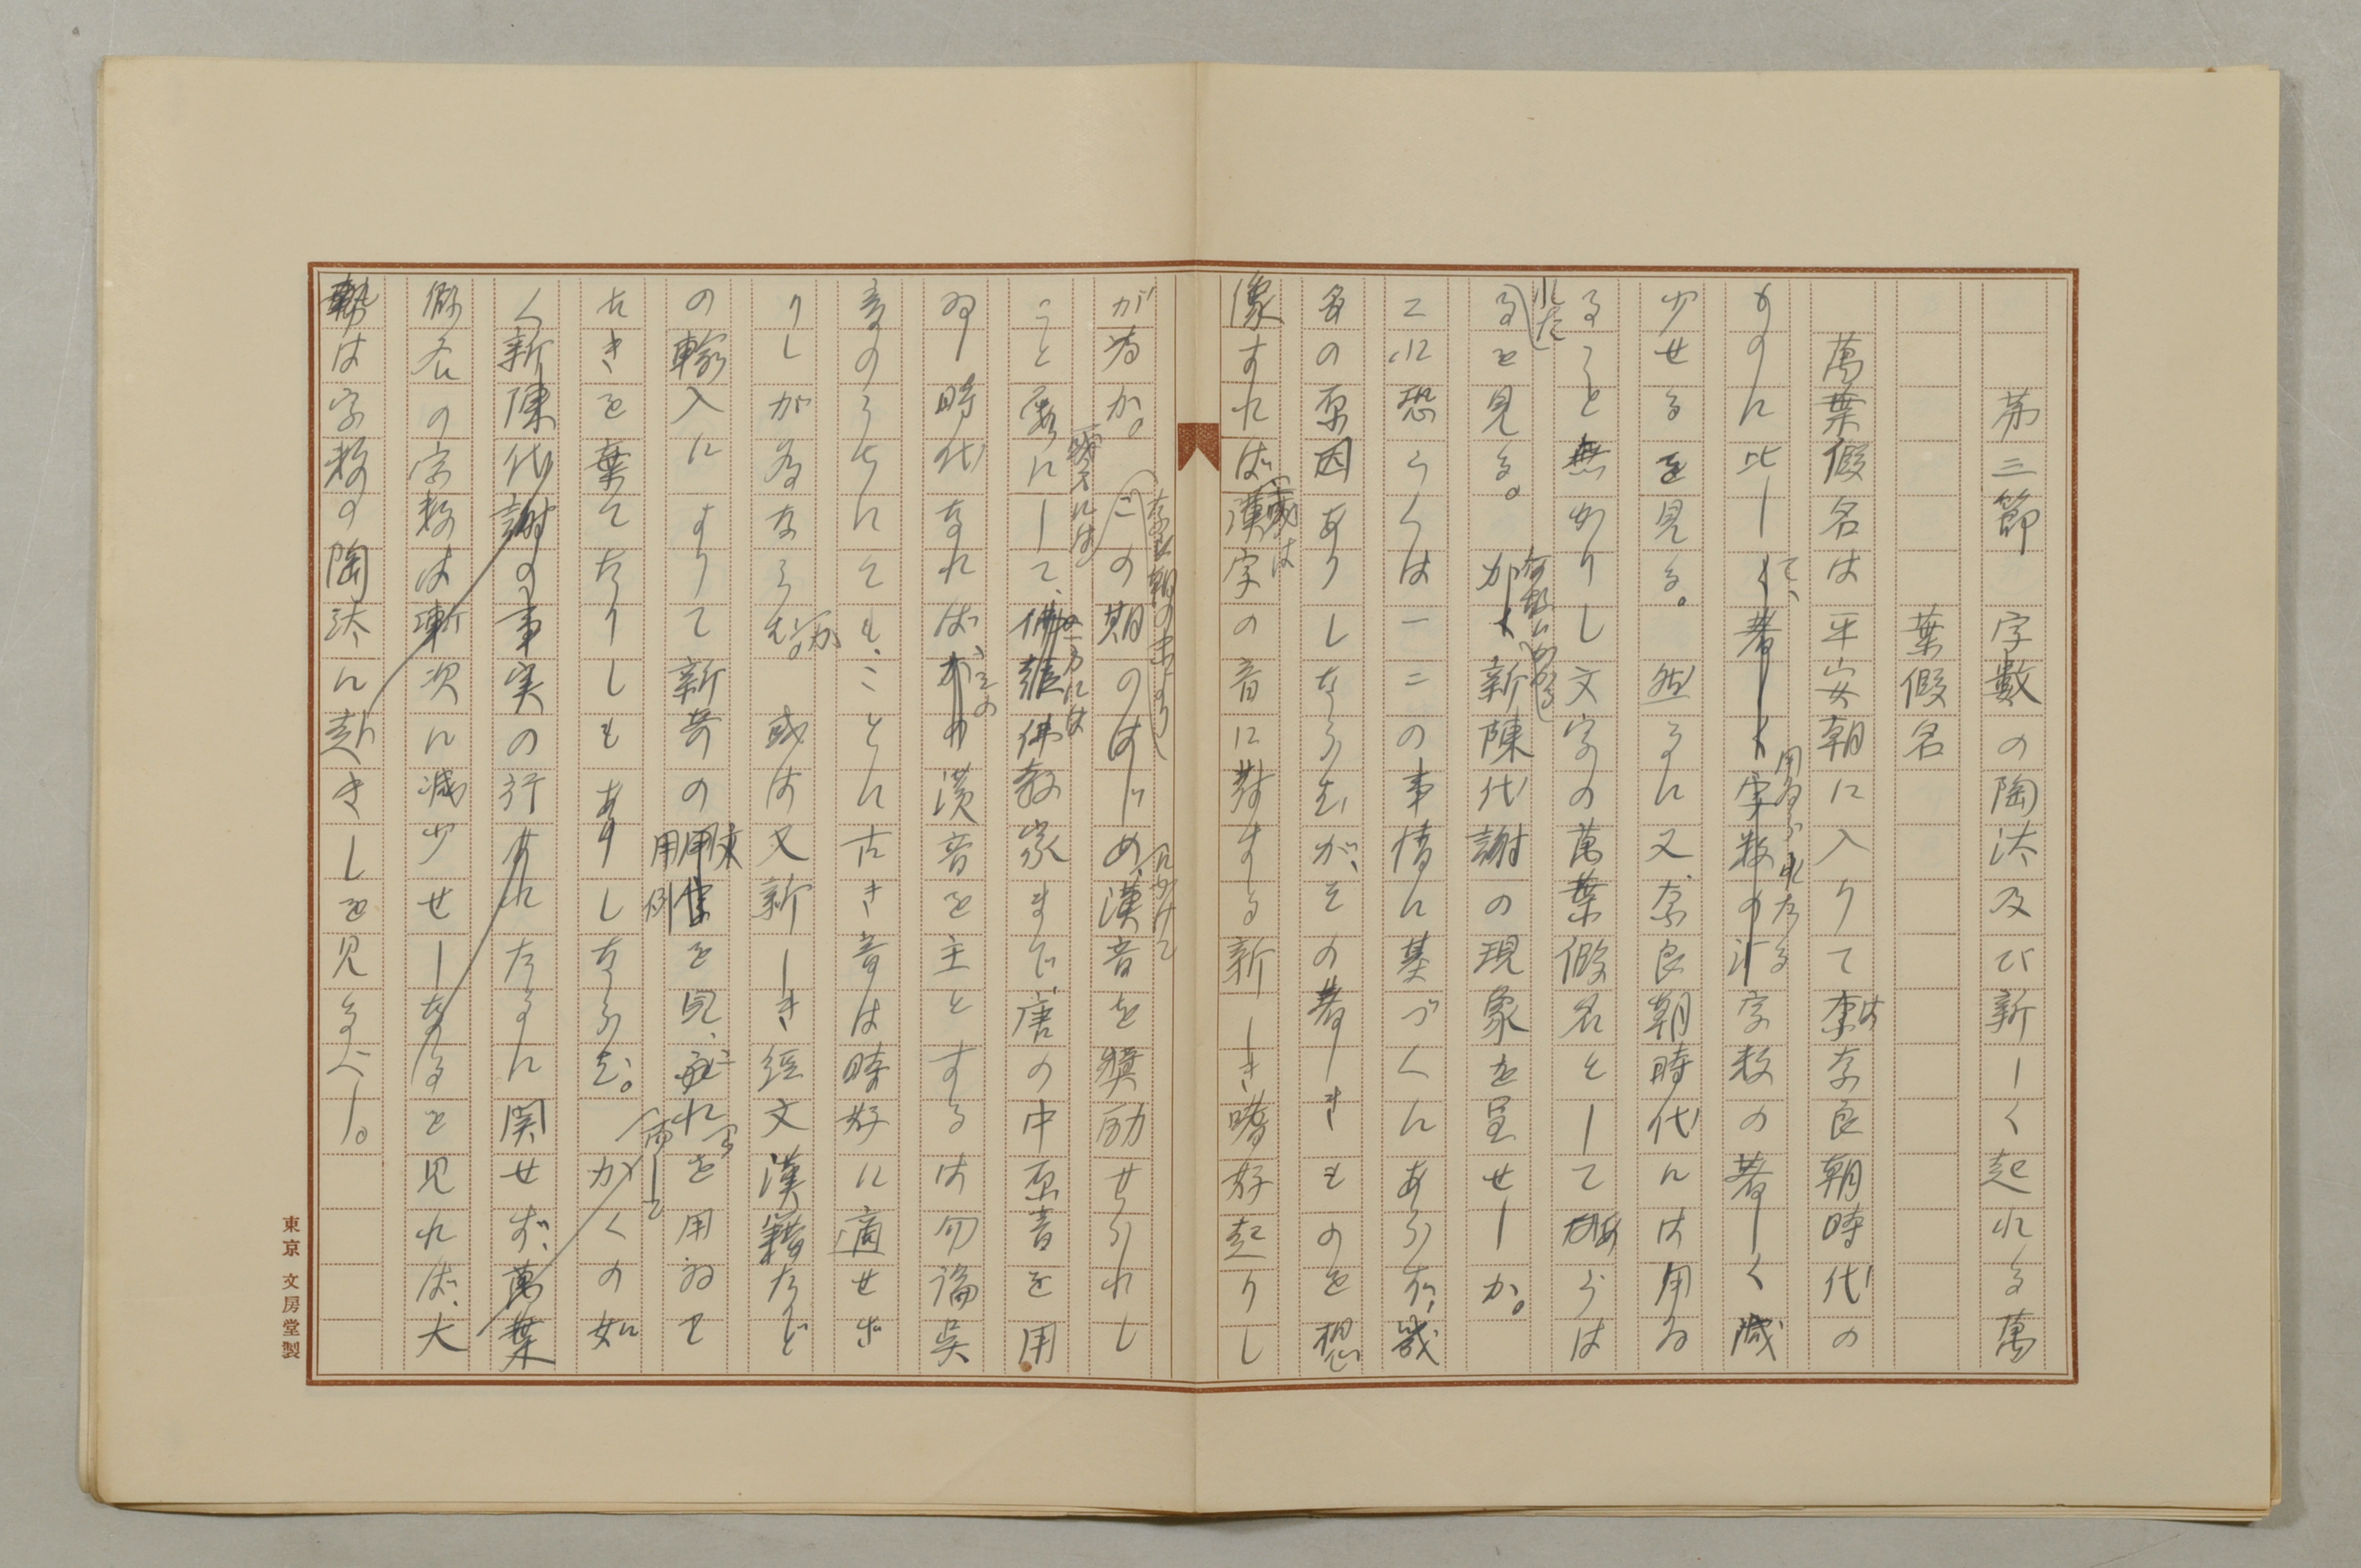 第三節　字數の陶汰及び新しく起れる萬
葉假名
萬葉假名は平安朝に入りて奈良朝時代の
ものに比して、用ゐられたる字数の著しく減
少せるを見る。然るに又奈良朝時代には用ゐ
ること無かりし文字の萬葉假名として
るを見る。何故にかかる新陳代謝の現象を呈せしか。
こは恐らくは一二の事情に基づくにあらず、幾
多の原因ありしならむが、その著しきものを想
像すれば、或は漢字の音に對する新しき嗜好起りし
が為か。奈良朝の末よりこの期のはじめにかけて漢音を獎励せられし
こと嚴にして、佛教家まで唐の中原音を用
ゐし時代なれば、その漢音を主とするは勿論呉
音のうちにても、ことに古き音は時好に適せざ
りしが為ならむか。或は又新しき經文漢籍など
の輸入によりて新奇の用例を見、これを用ゐて
古きを棄てたりしもありしならむ。かくの如
く新陳代謝の事実の行はれたるに関せず、萬葉
假名の字数は漸次に減少せしなるを見れば、大
勢は字数の陶汰に赴きしを見るべし。
東京 文房堂製